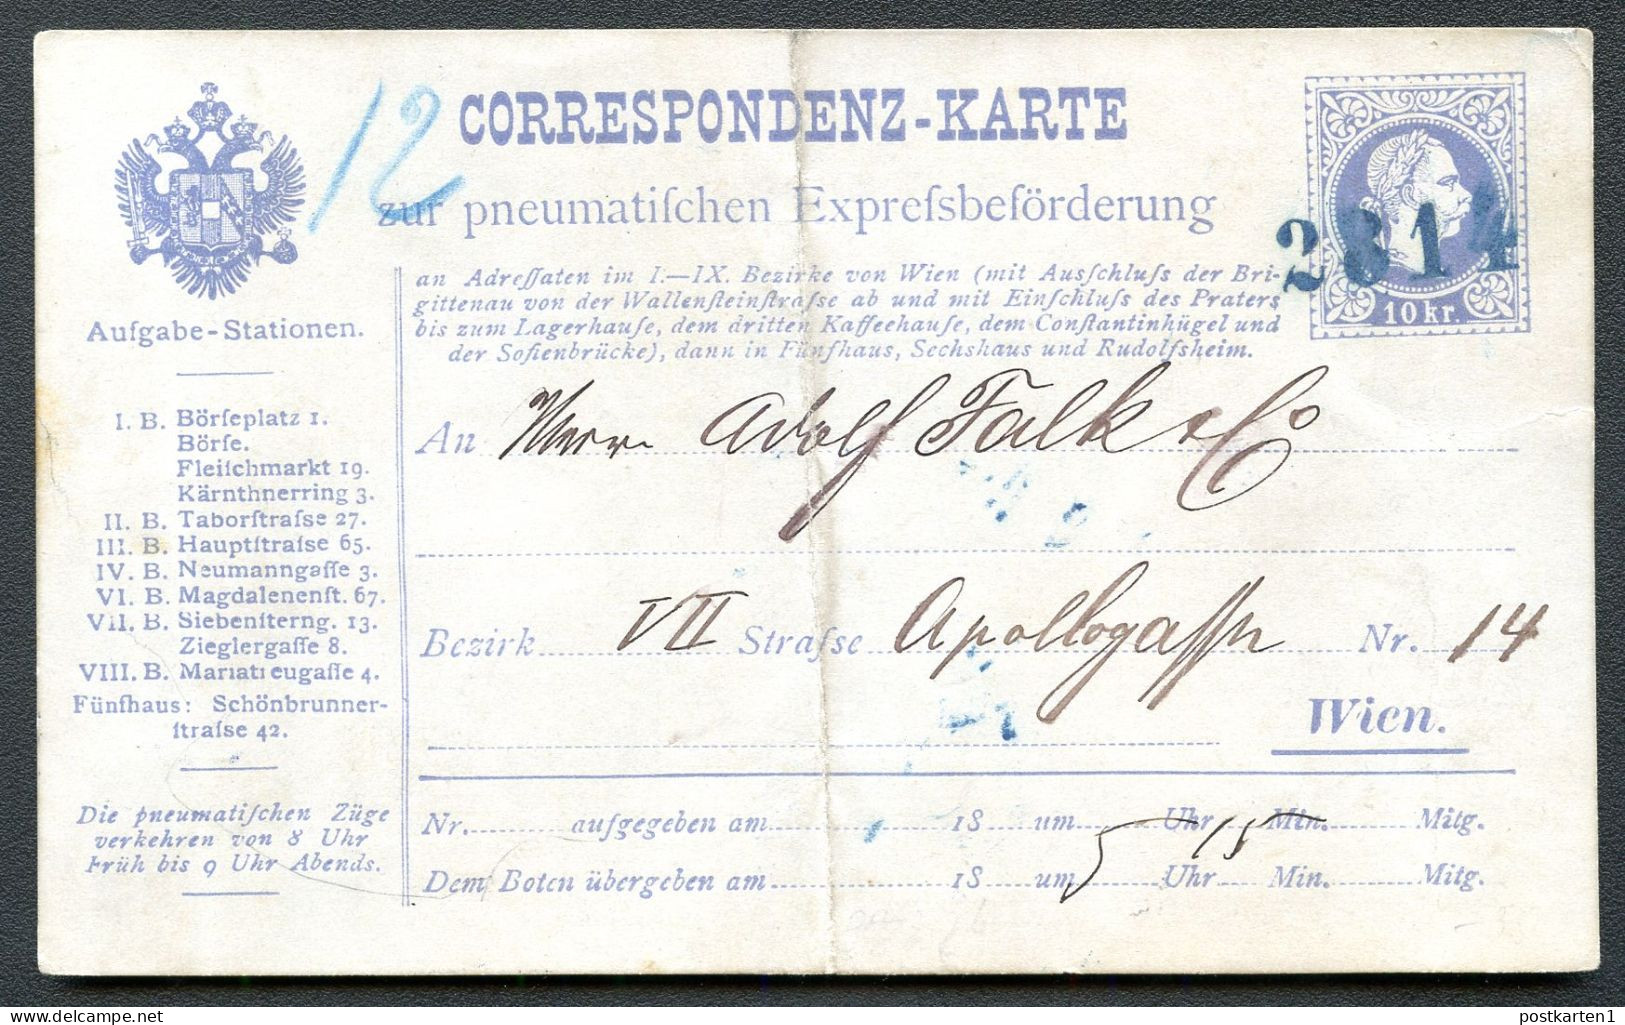 12
CORRESPONDENZ-KARTE
zur pneumatiſchen Expreſsbeförderung
2814
10 kr.
an Adreſſaten im I.—IX. Bezirke von Wien (mit Ausſchluſs der Bri-
gittenau von der Wallenſteinſtraſse ab und mit Einſchluſs des Praters
bis zum Lagerhauſe, dem dritten Kaffeehauſe, dem Conſtantinhügel und
der Sofienbrücke), dann in Fünfhaus, Sechshaus und Rudolfsheim.
Aufgabe-Stationen.
I. B. Börſeplatz 1.
Börſe.
Fleiſchmarkt 19.
Kärnthnerring 3.
II. B. Taborſtraſse 27.
III. B. Hauptſtraſse 65.
IV. B. Neumanngaſſe 3.
VI. B. Magdalenenſt. 67.
VII. B. Siebenſterng. 13.
Zieglergaſſe 8.
VIII. B. Mariatreugaſſe 4.
Fünfhaus: Schönbrunner-
ſtraſse 42.
Die pneumatiſchen Züge
verkehren von 8 Uhr
Früh bis 9 Uhr Abends.
An Herrn Adolf Falk & Co
Bezirk VII Straſse Apollogaſse Nr. 14
Wien.
Nr. aufgegeben am 18 um Uhr Min. Mitg.
5 15
Dem Boten übergeben am 18 um Uhr Min. Mitg.
postkarten1